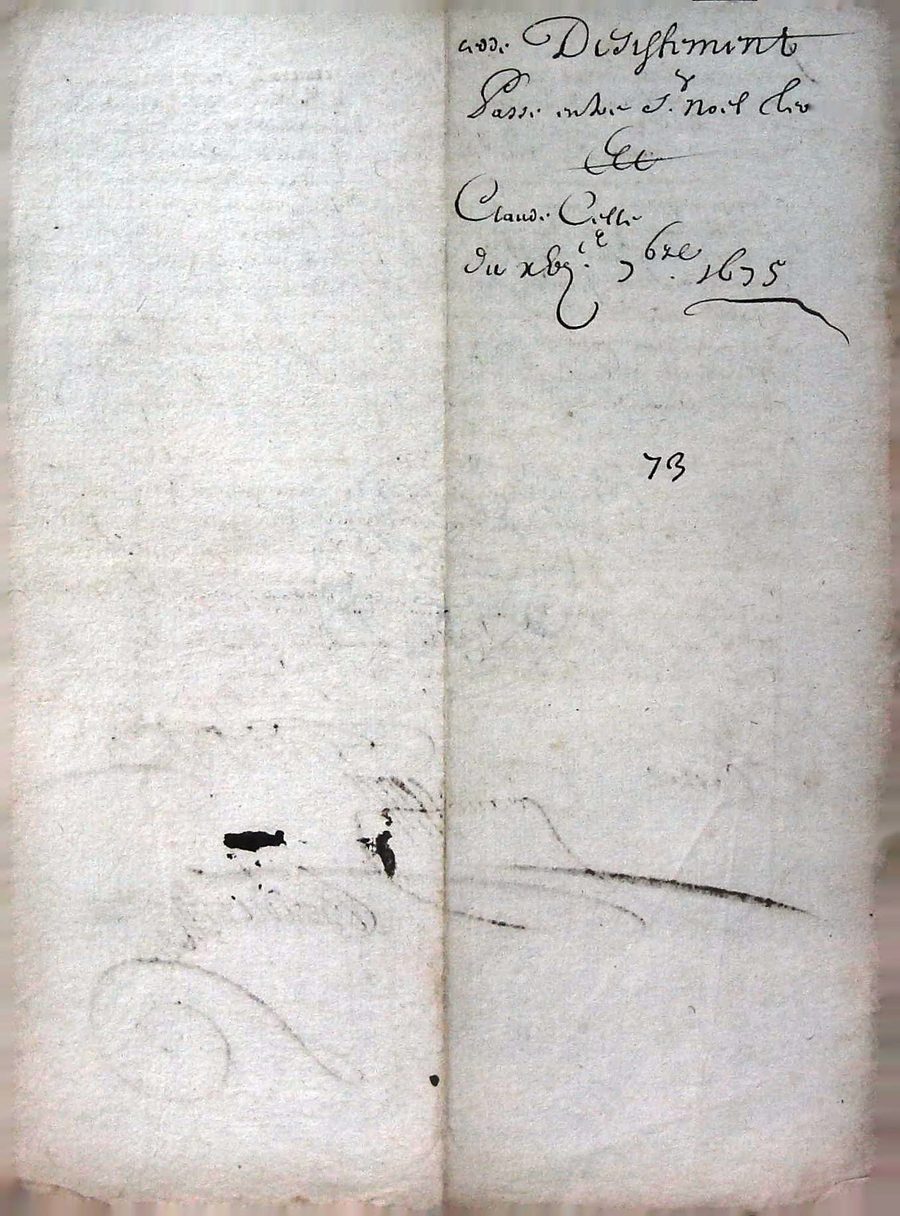 acde Desistement
Passé entre Sr. Noel Clev
Et
Claude Celle
du xbije 7bre 1675
73